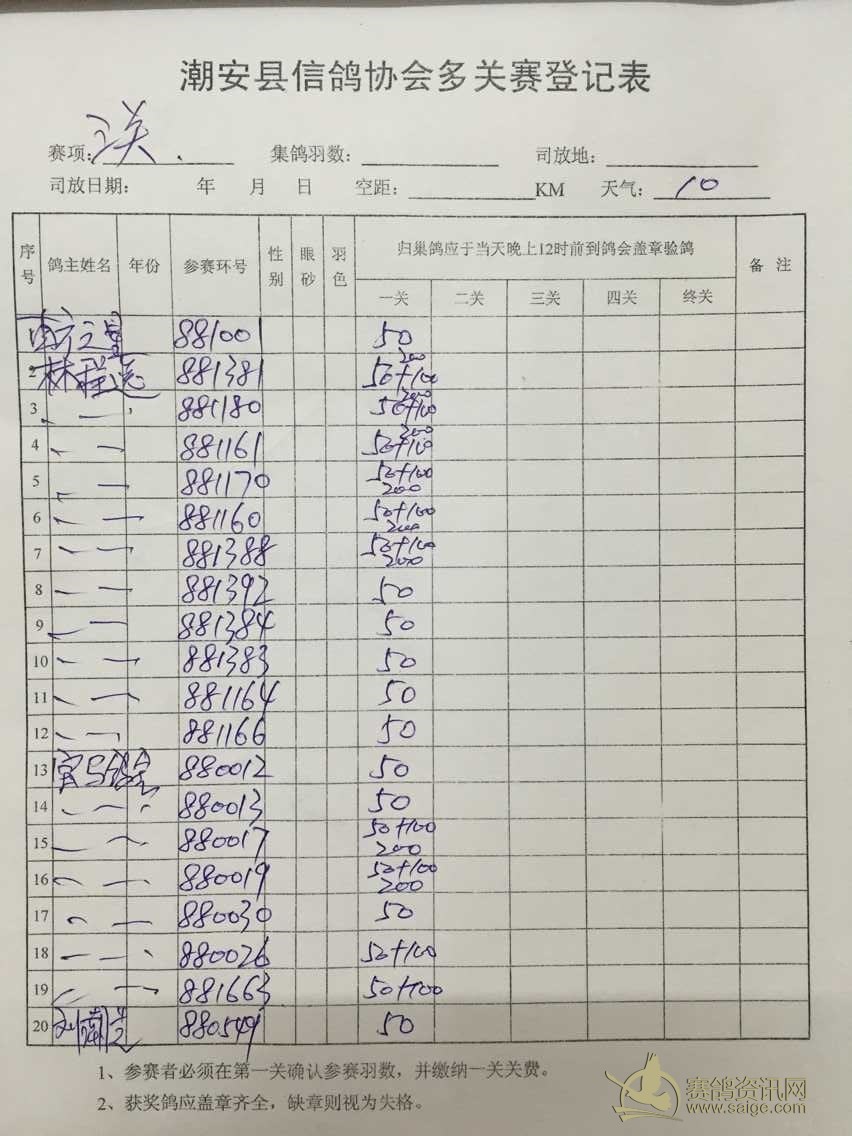 潮安县信鸽协会多关赛登记表
赛项: 关 集鸽羽数: 司放地:
司放日期: 年 月 日 空距: KM 天气: 10
序号 鸽主姓名 年份 参赛环号 性别 眼砂 羽色 归巢鸽应于当天晚上12时前到鸽会盖章验鸽 备 注
一关 二关 三关 四关 终关
881001 50
2 林程远 881381 50+100 200
3 881180 50+100 200
4 881161 50+100 200
5 881170 50+100 200
6 881160 50+100 200
7 881388 50+100 200
8 881392 50
9 881384 50
10 881383 50
11 881164 50
12 881166 50
13 880012 50
14 880013 50
15 880017 50+100 200
16 880019 50+100 200
17 880030 50
18 880026 50+100
19 881663 50+100
20 880549 50
1、参赛者必须在第一关确认参赛羽数，并缴纳一关关费。
2、获奖鸽应盖章齐全，缺章则视为失格。
赛鸽资讯网
www.saige.com